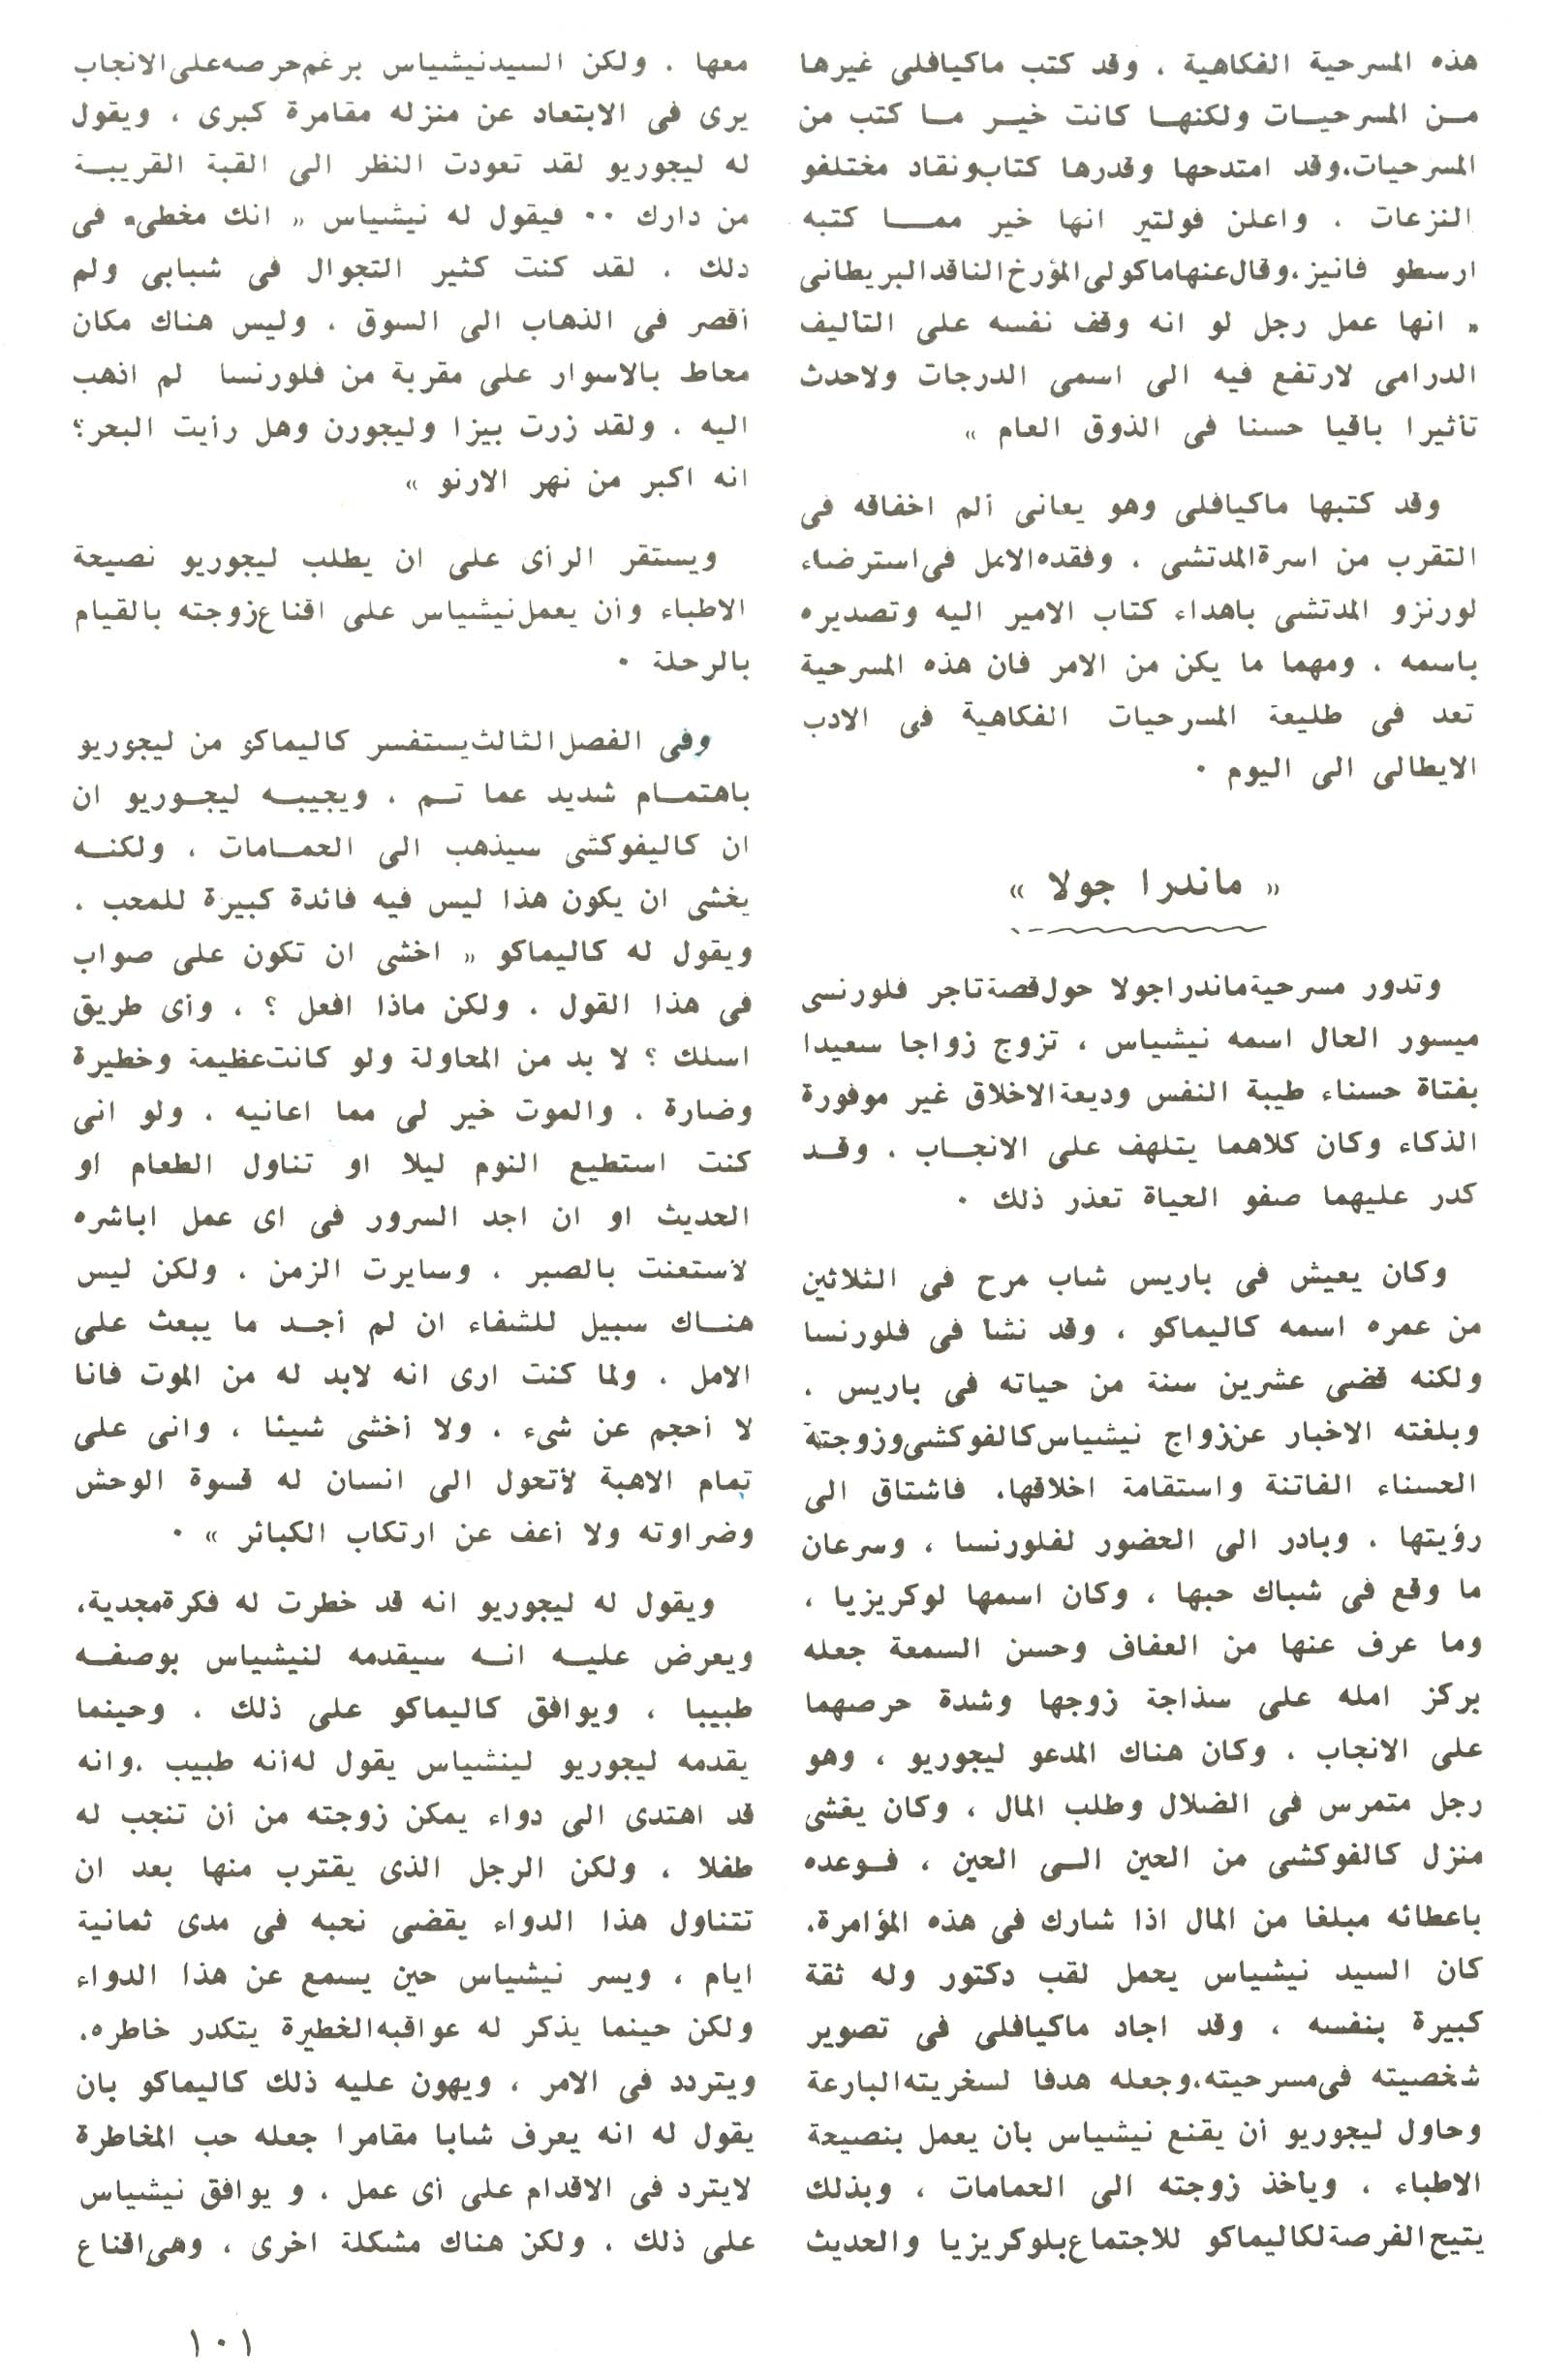 هذه المسرحية الفكاهية ، وقد كتب ماكيافلى غيرها
مـن المسرحيـات ولكنهـا كانت خيـر مـا كتب من
المسرحيات،وقد امتدحها وقدرها كتاب‌ونقاد مختلفو
النزعات ، واعلن فولتير انها خير ممـا كتبه
ارسطو فانيز،وقال‌عنها‌ماكولى‌المؤرخ‌الناقد‌البريطانى
« انها عمل رجل لو انه وقف نفسه على التاليف
الدرامى لارتفع فيه الى اسمى الدرجات ولاحدث
تأثيرا باقيا حسنا فى الذوق العام »
وقد كتبها ماكيافلى وهو يعانى ألم اخفاقه فى
التقرب من اسرة المدتشى ، وفقده الامل فى استرضاء
لورنزو المدتشى باهداء كتاب الامير اليه وتصديره
باسمه ، ومهما ما يكن من الامر فان هذه المسرحية
تعد فى طليعة المسرحيات الفكاهية فى الادب
الايطالى الى اليوم ٠
« ماندرا جولا »
وتدور مسرحية ماندراجولا حول قصة تاجر فلورنسى
ميسور الحال اسمه نيشياس ، تزوج زواجا سعيدا
بفتاة حسناء طيبة النفس وديعة الاخلاق غير موفورة
الذكاء وكان كلاهما يتلهف على الانجـاب ، وقـد
كدر عليهما صفو الحياة تعذر ذلك ٠
وكان يعيش فى باريس شاب مرح فى الثلاثين
من عمره اسمه كاليماكو ، وقد نشأ فى فلورنسا
ولكنه قضى عشرين سنة من حياته فى باريس ،
وبلغته الاخبار عن زواج نيشياس كالفوكشى وزوجته
الحسناء الفاتنة واستقامة اخلاقها، فاشتاق الى
رؤيتها ، وبادر الى الحضور لفلورنسا ، وسرعان
ما وقع فى شباك حبها ، وكان اسمها لوكريزيا ،
وما عرف عنها من العفاف وحسن السمعة جعله
يركز امله على سذاجة زوجها وشدة حرصهما
على الانجاب ، وكان هناك المدعو ليجوريو ، وهو
رجل متمرس فى الضلال وطلب المال ، وكان يغشى
منزل كالفوكشى من الحين الـى الحين ، فـوعده
باعطائه مبلغا من المال اذا شارك فى هذه المؤامرة،
كان السيد نيشياس يحمل لقب دكتور وله ثقة
كبيرة بنفسه ، وقد اجاد ماكيافلى فى تصوير
شخصيته فى مسرحيته،وجعله هدفا لسخريته البارعة
وحاول ليجوريو أن يقنع نيشياس بأن يعمل بنصيحة
الاطباء ، وياخذ زوجته الى الحمامات ، وبذلك
يتيح الفرصة لكاليماكو للاجتماع بلوكريزيا والحديث
معها ، ولكن السيد نيشياس برغم حرصه على الانجاب
يرى فى الابتعاد عن منزله مقامرة كبرى ، ويقول
له ليجوريو لقد تعودت النظر الى القبة القريبـة
من دارك ٠٠ فيقول له نيشياس « انك مخطىء فى
دلك ، لقد كنت كثير التجوال فى شبابى ولم
أقصر فى الذهاب الى السوق ، وليس هناك مكان
محاط بالاسوار على مقربة من فلورنسا لم اذهب
اليه ، ولقد زرت بيزا وليجورن وهل رأيت البحر؟
انه اكبر من نهر الارنو »
ويستقر الرأى على ان يطلب ليجوريو نصيحة
الاطباء وأن يعمل نيشياس على اقناع زوجته بالقيام
بالرحلة ٠
وفى الفصل الثالث يستفسر كاليماكو من ليجوريو
باهتمـام شديد عما تـم ، ويجيبـه ليجـوريو ان
ان كاليفوكشى سيذهب الى الحمـامات ، ولكنـه
يخشى ان يكون هذا ليس فيه فائدة كبيرة للمحب ،
ويقول له كاليماكو « اخشى ان تكون على صواب
فى هذا القول ، ولكن ماذا افعل ؟ ، وأى طريق
اسلك ؟ لا بد من المحاولة ولو كانت عظيمة وخطيرة
وضارة ، والموت خير لى مما اعانيه ، ولو انى
كنت استطيع النوم ليلا او تناول الطعام او
الحديث او ان اجد السرور فى اى عمل اباشره
لاستعنت بالصبر ، وسايرت الزمن ، ولكن ليس
هنـاك سبيل للشفاء ان لم أجـد ما يبعث على
الامل ، ولما كنت ارى انه لابد له من الموت فانا
لا أحجم عن شىء ، ولا أخشى شيئا ، وانى على
تمام الاهبة لأتحول الى انسان له قسوة الوحش
وضراوته ولا أعف عن ارتكاب الكبائر » ٠
ويقول له ليجوريو انه قد خطرت له فكرة مجدية،
ويعرض عليـه انـه سيقدمه لنيشياس بوصفـه
طبيبا ، ويوافق كاليماكو على ذلك ، وحينما
يقدمه ليجوريو لينشياس يقول له أنه طبيب ،وانه
قد اهتدى الى دواء يمكن زوجته من أن تنجب له
طفلا ، ولكن الرجل الذى يقترب منها بعد ان
تتناول هذا الدواء يقضى نحبه فى مدى ثمانية
ايام ، ويسر نيشياس حين يسمع عن هذا الدواء
ولكن حينما يذكر له عواقبه الخطيرة يتكدر خاطره،
ويتردد فى الامر ، ويهون عليه ذلك كاليماكو بان
يقول له انه يعرف شابا مقامرا جعله حب المخاطرة
لايترد فى الاقدام على أى عمل ، و يوافق نيشياس
على ذلك ، ولكن هناك مشكلة اخرى ، وهى اقناع
١٠١